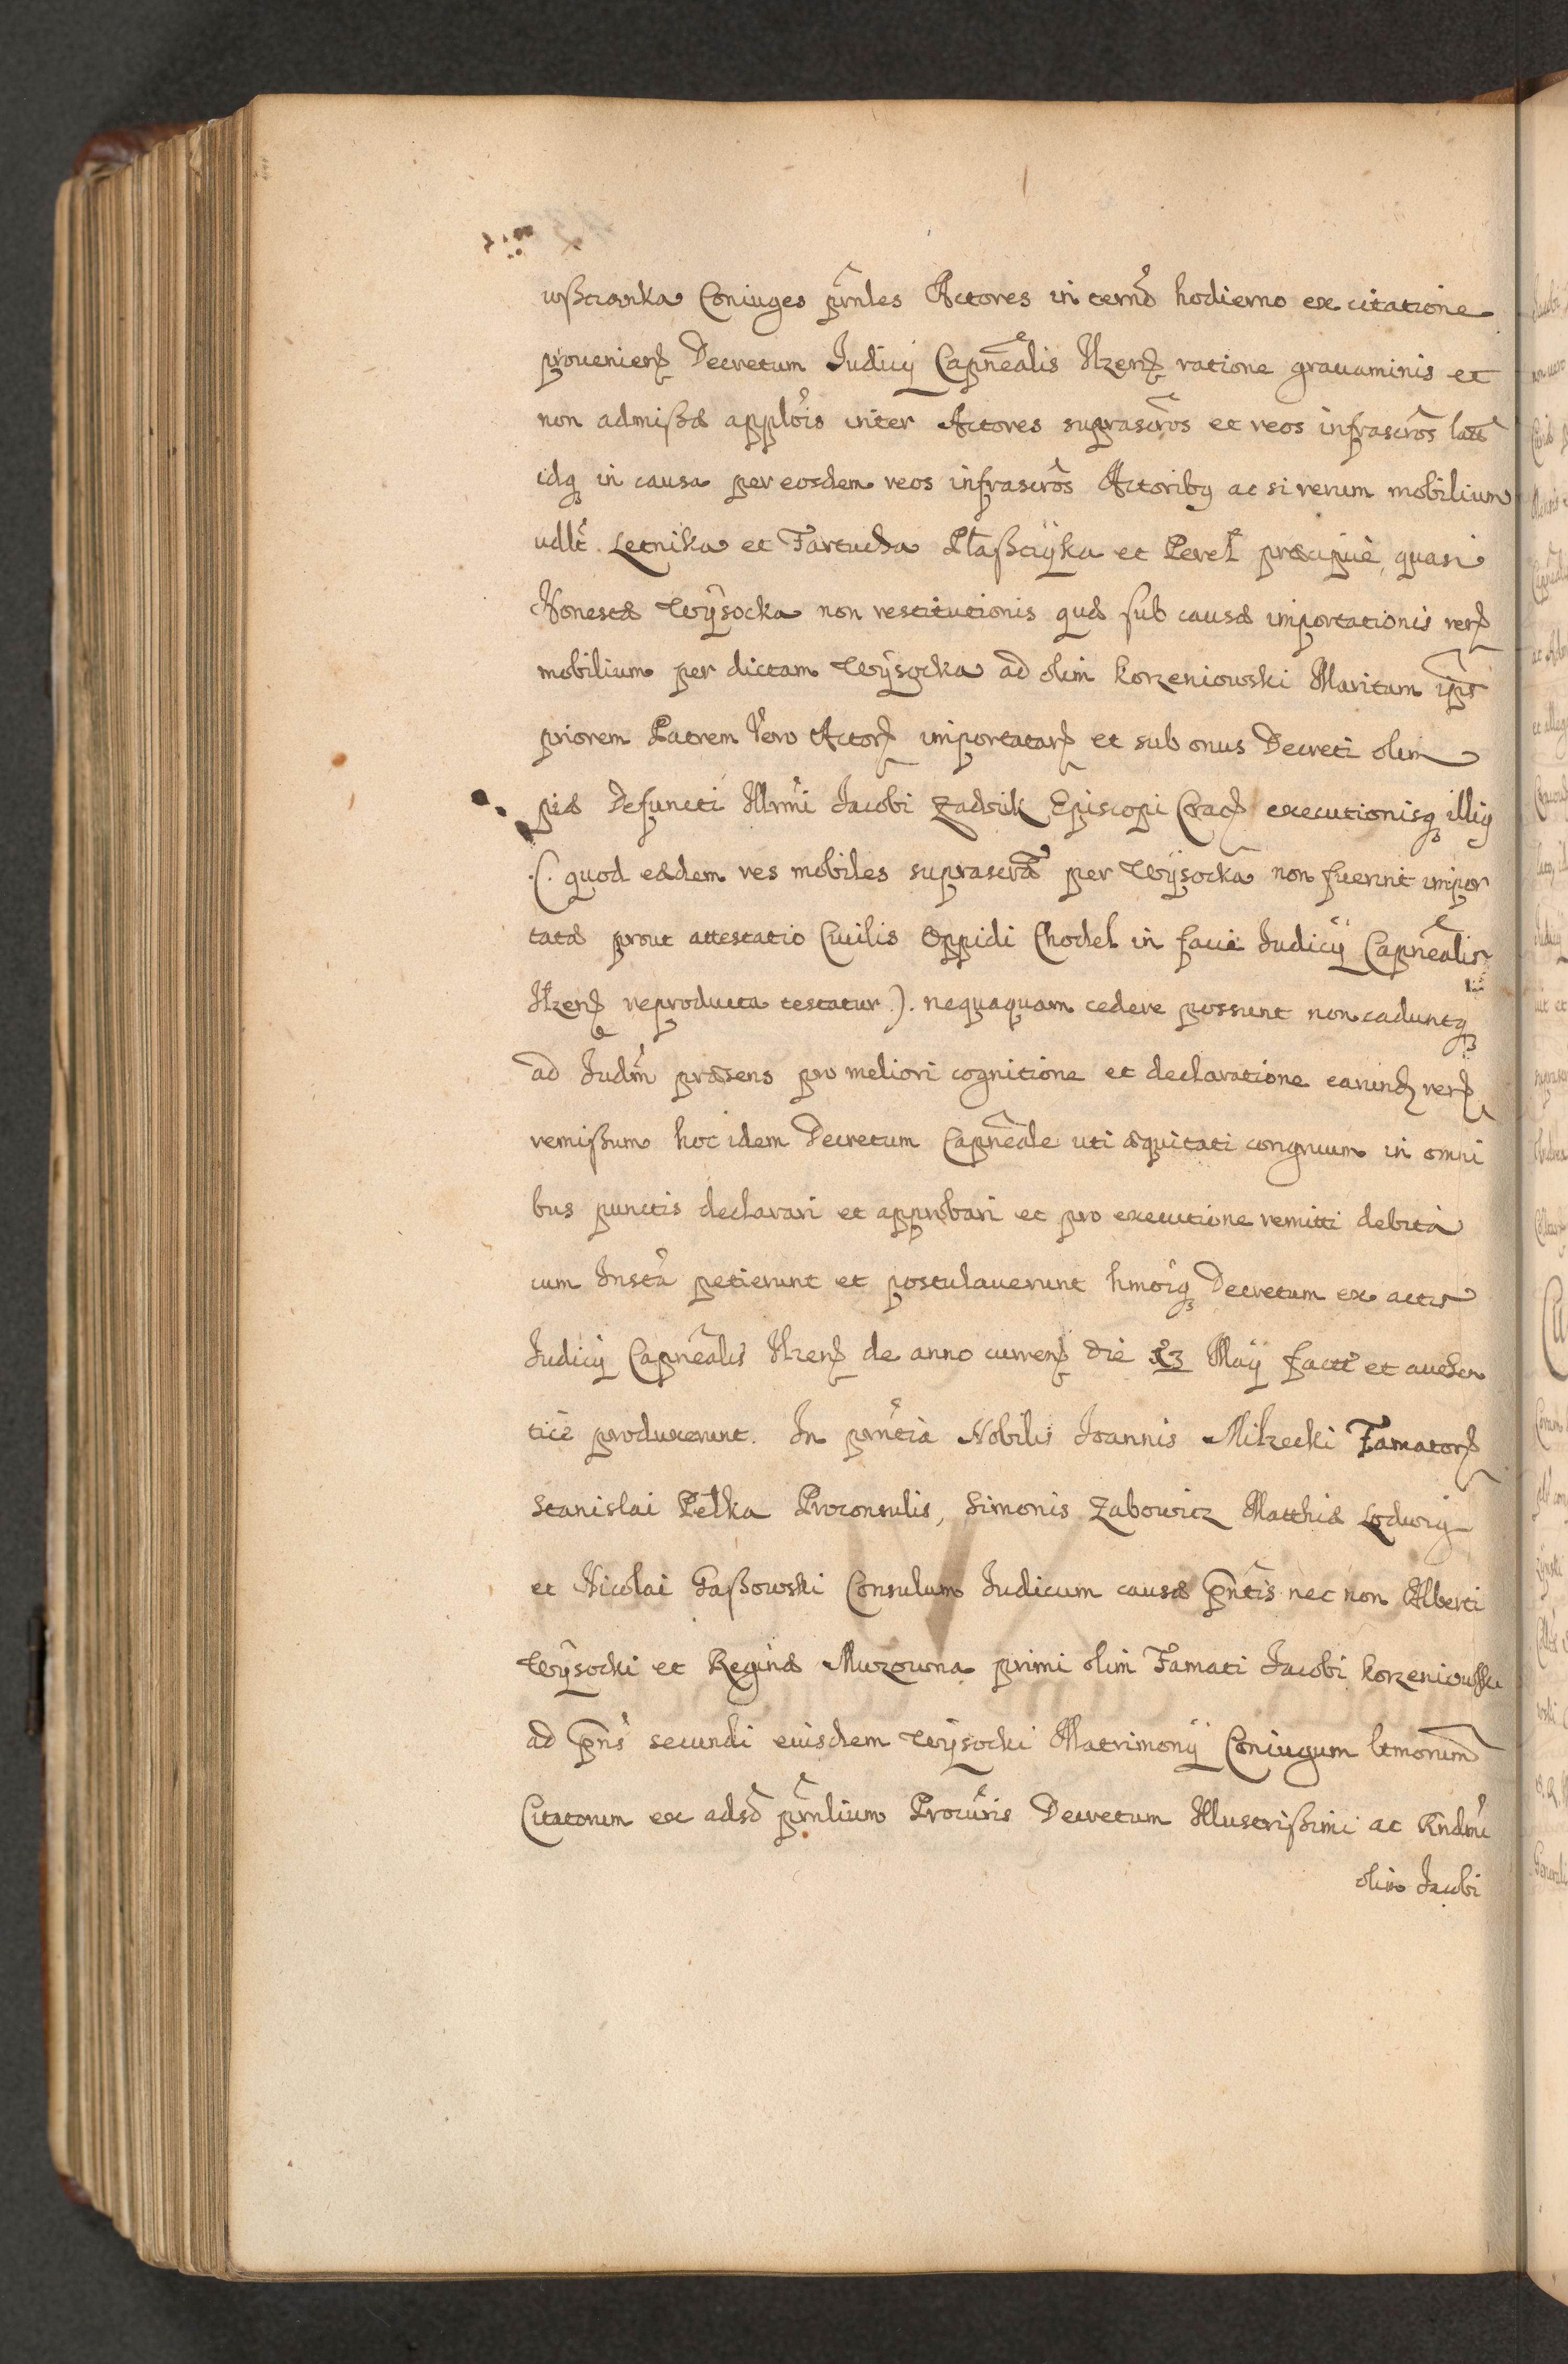 wßcianka Coniuges prnles Actores in termo hodierno ex citatione
prouenien Decretum Iudicy Capnealis Ilzen ratione grauaminis et
non admißæ applois inter Actores suprascros et reos infrascros latt
idq in causa per eosdem reos infrascros Actoribq ac si rerum mobilium
udlt Letnika et Fartucha Płaßczyka et Pereł præcipuè, quasi
Honestæ Wysocka non restitutionis quæ sub causæ importationis rer
mobilium per dictam Wysocka ad olim Korzeniowski Maritum ips
priorem Patrem Vero Actor importatar et sub onus Decreti olim
piæ Defuncti Illrmi Iacobi Zadzik Episcopi Crac executionisq illiq
.(. quod eædem res mobiles suprascræ per Wysocka non fuerint impor
tatæ prout attestatio Ciuilis Oppidi Chodel in facie Iudicy Capnealis
Ilzen reproducta testatur ). nequaquam cedere possunt non caduntq
ad Iudm præsens pro meliori cognitione et declaratione earund rer
remißum hoc idem Decretum Capneale uti æquitati congruum in omni
bus punctis declarari et approbari et pro executione remitti debita
cum Insta petierunt et postulauerunt hmoiq Decretum ex actis
Iudicy Capnealis Ilzen de anno curren die 23 Maij factt et authen
ticè produxerunt. In prntia Nobilis Ioannis Milzecki Famator
Stanislai Pełka Proconsulis, Simonis Zabowicz Matthiæ Lodwig
et Nicolai Gaßowski Consulum Iudicum causæ pntis nec non Alberti
Wysocki et Reginæ Muzowna primi olim Famati Iacobi Korzeniowski
ad pns secundi eiusdem Wysocki Matrimonij Coniugum ltmorum
Citatorum ex adso prnlium Procuris Decretum Illustrißimi ac Rndmi
olim Iacobi